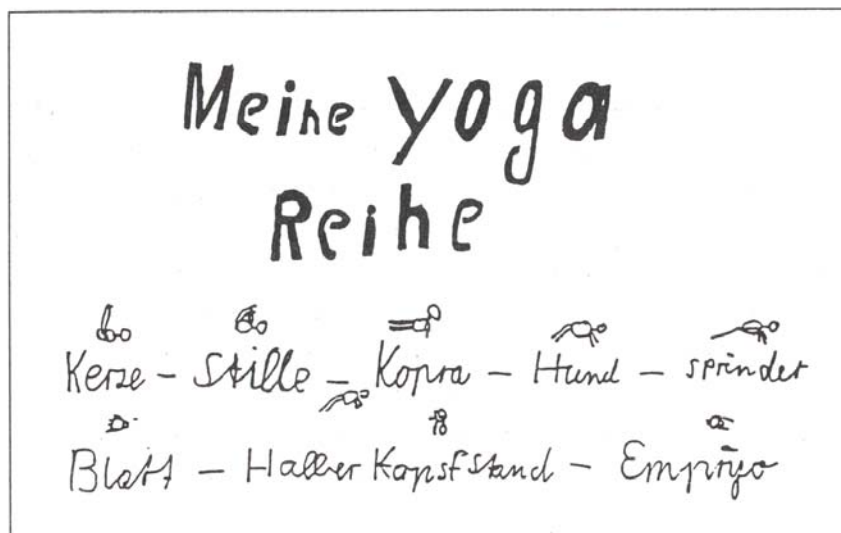 Meine yoga
Reihe
Kerze – Stille – Kopra – Hund – sprinder
Blatt – Halber Kopsfstand – Empriyo